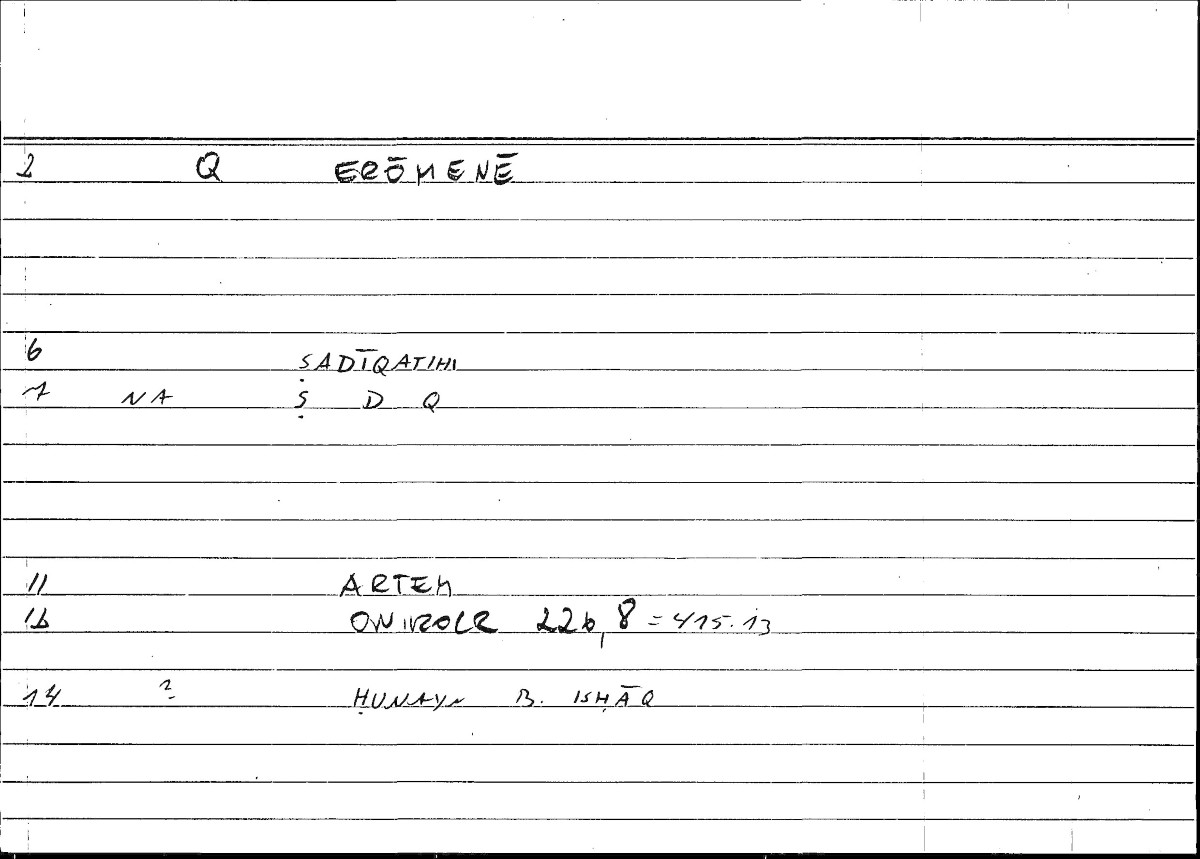 2 Q ERŌMENĒ
6 ṢADĪQATIHI
7 NA Ṣ D Q
11 ARTEM
12 ONIROCR 226,8 = 415.13
14 ? ḤUNAYN B. ISḤĀQ